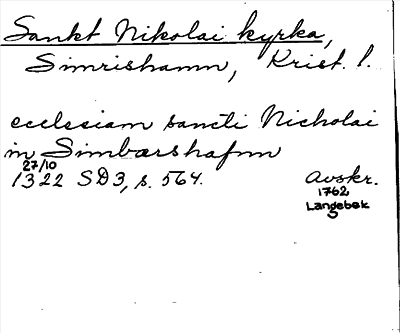 Sankt Nikolai kyrka,
Simrishamn, Krist. l.
ecclesiam sancti Nicholai
in Simbarshafnn
27/10
1322 SD3, s. 564. Avskr.
1762
Langebek